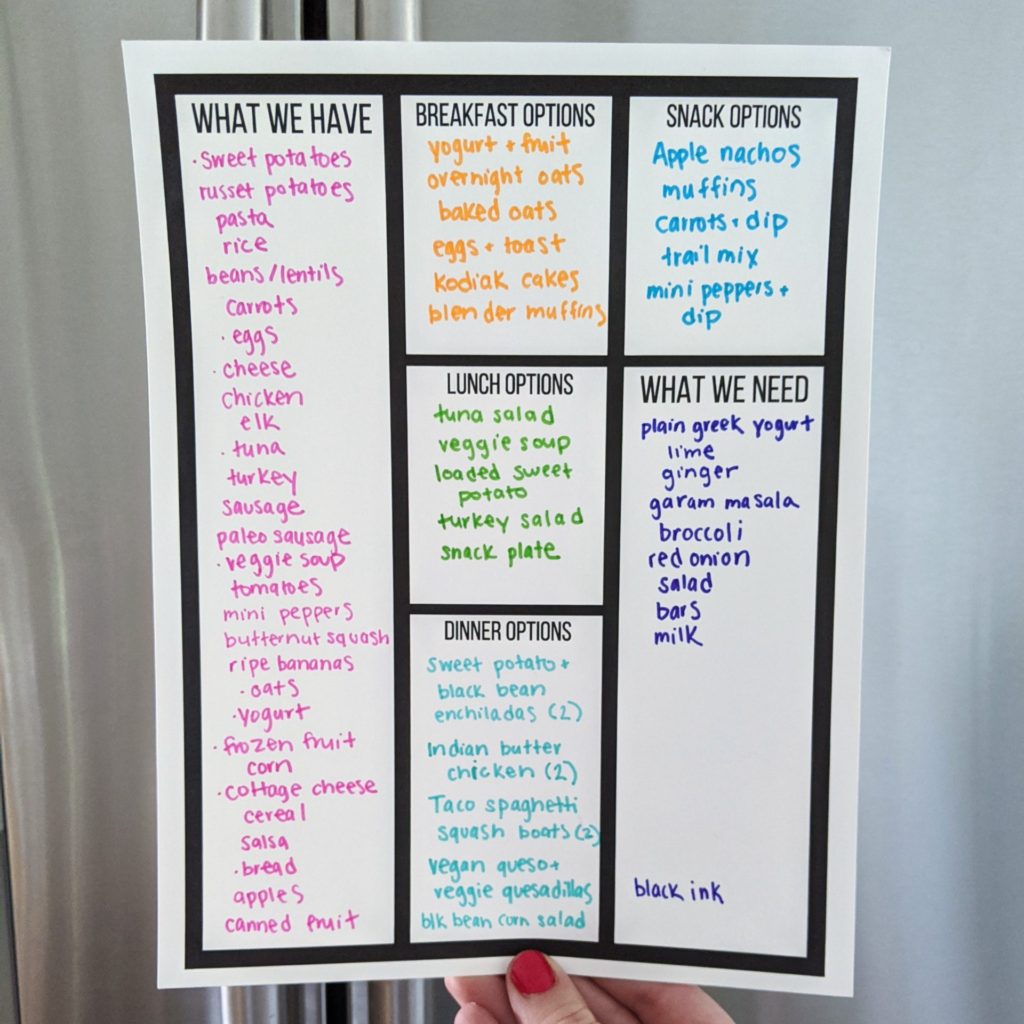 WHAT WE HAVE
· sweet potatoes
russet potatoes
pasta
rice
beans/lentils
carrots
· eggs
· cheese
chicken
elk
· tuna
turkey
sausage
paleo sausage
· veggie soup
tomatoes
mini peppers
butternut squash
ripe bananas
· oats
· yogurt
· frozen fruit
corn
· cottage cheese
cereal
salsa
· bread
apples
canned fruit
BREAKFAST OPTIONS
yogurt + fruit
overnight oats
baked oats
eggs + toast
kodiak cakes
blender muffins
LUNCH OPTIONS
tuna salad
veggie soup
loaded sweet
potato
turkey salad
snack plate
DINNER OPTIONS
sweet potato +
black bean
enchiladas (2)
Indian butter
chicken (2)
Taco spaghetti
squash boats (2)
vegan queso +
veggie quesadillas
blk bean corn salad
SNACK OPTIONS
Apple nachos
muffins
carrots + dip
trail mix
mini peppers +
dip
WHAT WE NEED
plain greek yogurt
lime
ginger
garam masala
broccoli
red onion
salad
bars
milk
black ink